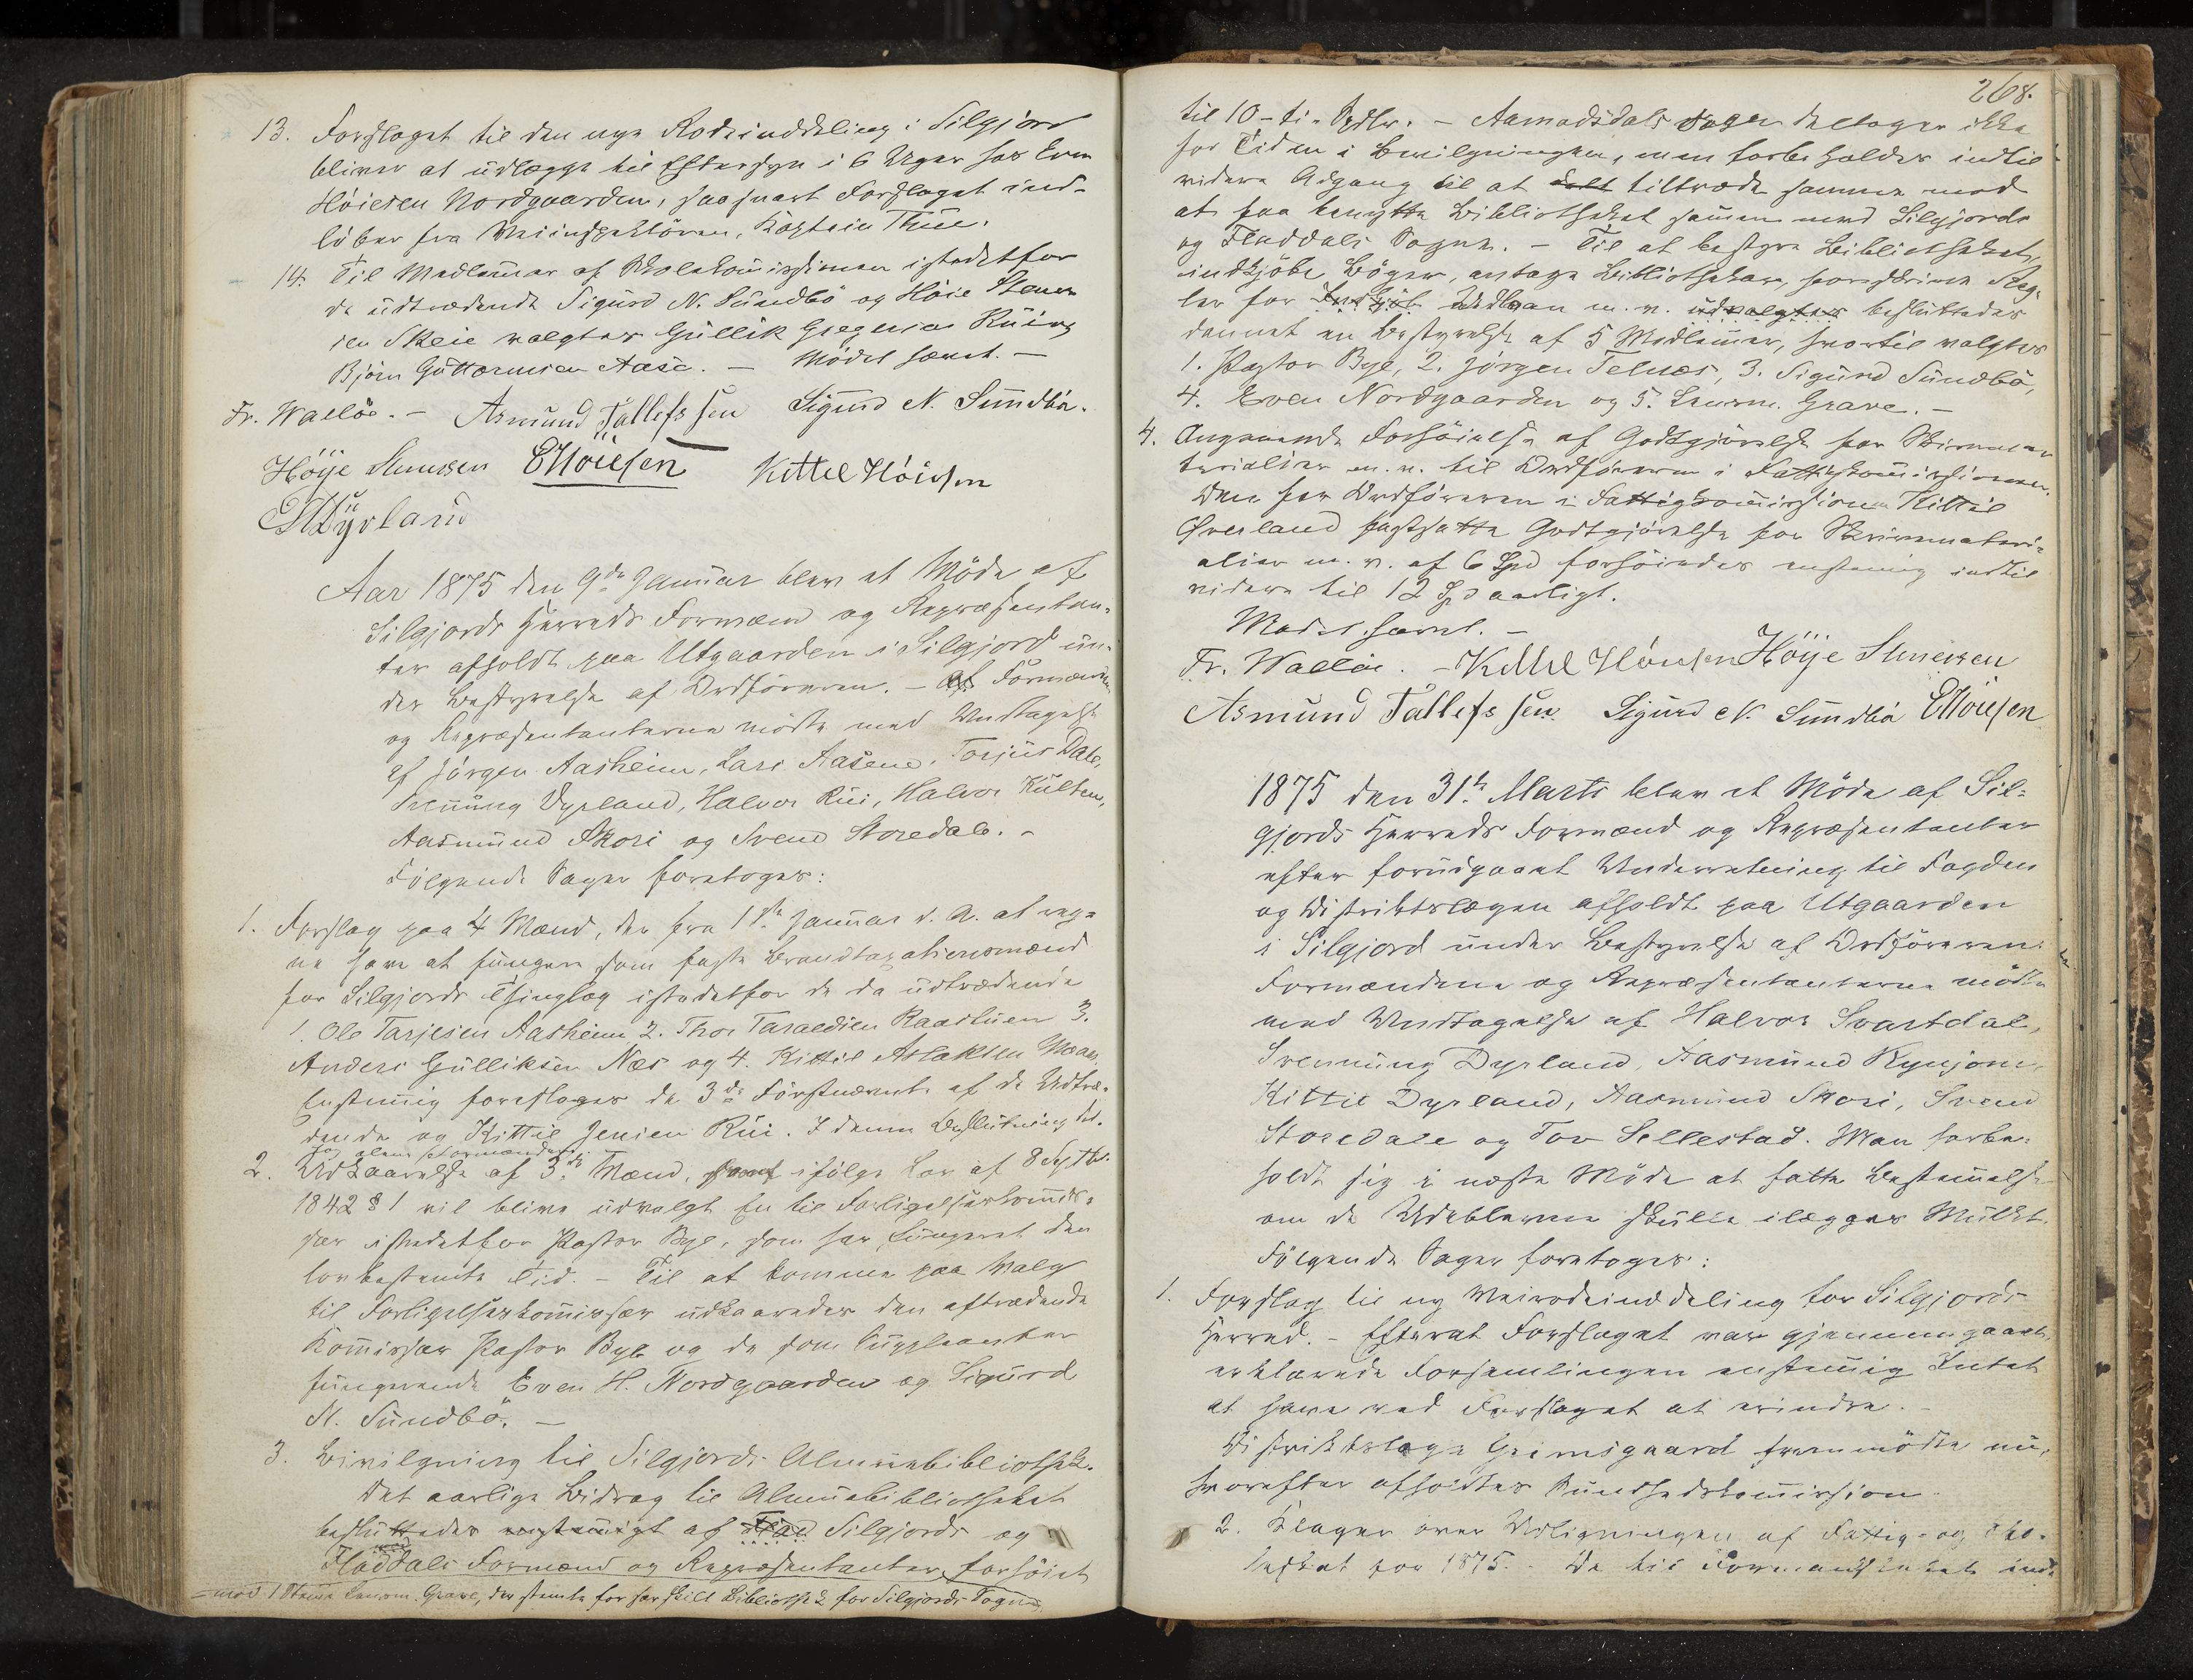 13. Forslaget til den nye Rodeinddeling i Silgjord
bliver at udlægge til Eftersyn i 6 Uger hos Even
Høiesen Nordgaarden, saasnart Forslaget ind-
løber fra Veiinspektören, Kaptein Thue.
14. Til Medlemmer af Skolekommissionen istedetfor
de udtrædende Sigurd N. Sundbö og Höie Steners
sen Skeie valgtes Gullik Gregersen Ruing
Björn Guttormsen Aase. — Mödet hævet. —
Fr. Wallöe. — Asmund Tallefssen Sigurd N. Sundbö.
Höÿe Stenersen EHöiesen Kittel Höiesen
Dÿrland
Aar 1875 den 9de Januar blev et Möde af
Silgjords Herreds Formænd og Repræsentan-
ter afholdt paa Utgaarden i Silgjord un-
der Bestyrelse af Ordföreren. — Af Formændene
og Repræsentanterne mödte med Undtagelse
af Jörgen Aasheim, Lars Aasene, Torjus Dale,
Svennung Dyrland, Halvor Rui, Halvor Kulten,
Aasmund Skori og Svend Storedale. -
Følgende Sager foretoges:
1. Forslag paa 4 Mænd, der fra 1ste Januar d. A. at reg-
ne have at fungere som faste Brandtaxationsmænd
for Silgjords Thinglag istedetfor de da udtrædende
1. Ole Tarjesen Aasheim 2. Thor Taraldsen Raastuen 3.
Anders Gulliksen Næs og 4. Kittil Aslaksen
Enstemmig foresloges de 3de Förstnævnte af de Udtræ-
dende og Kittil Jensen Rui. I denne Beslutning del-
tog alene Formændene.
2. Udkaarelse af 3de Mænd, hvoraf ifölge Lov af 8 Septbr.
1842 § 1 vil blive udvalgt En til Forligelseskommis-
sær istedetfor Pastor Bye, som har fungeret den
lovbestemte Tid. - Til at komme paa Valg
til Forligelseskommissær udkaaredes den aftrædende
Kommissær Pastor Bye og de som Suppleanter
fungerende Even H. Nordgaarden og Sigurd
N. Sundbö. —
3. Bevilgning til Silgjords Almuebibliothek.
Det aarlige Bidrag til Almuebibliotheket
besluttedes enstemmigt af Flad Silgjords og
Fladdals Formænd og Repræsentanter forhöiet
= mod 1 Stemme Lensm. Grave, der stemte for særskilt Bibliothek for Silgjords Sogn
268.
til 10 - ti - Spdlr. - Aamodsdals Sogn deltager ikke
for Tiden i Bevilgningen, men forbeholdes indtil
videre Adgang til at delt tiltræde samme med
at faa benytte Bibliotheket sammen med Silgjords
og Fladdals Sogne. - Til at bestyre Bibliotheket,
indkjöbe Böger, antage Bibliothekar, foreskrive Reg-
ler for Indkjöb Udlaan m. v. udvalgtes besluttedes
dannet en Bestyrelse af 5 Medlemmer, hvortil valgtes
1. Pastor Bye, 2. Jörgen Telnes, 3. Sigurd Sundbö,
4. Even Nordgaarden og 5. Lensm. Grave. —
4. Angaaende Forhöielse af Godtgjörelse for Skrivema-
terialier m. v. til Ordföreren i Fattigkommissionen.
Den for Ordföreren i Fattigkommissionen Kittil
Överland fastsatte Godtgjörelse for Skrivemateri-
alier m. v. af 6 Spd forhöiedes enstemmig indtil
videre til 12 Spd aarligt.
Mödet hævet. —
Fr. Wallöe. - Kittel Höiesen Höÿe Stenersen
Asmund Tallefssen Sigurd N. Sundbö EHöiesen
1875 den 31te Marts blev et Möde af Sil-
gjords Herreds Formænd og Repræsentanter
efter forudgaaet Underretning til Fogden
og Distriktslægen afholdt paa Utgaarden
i Silgjord under Bestyrelse af Ordföreren.
Formændene og Repræsentanterne mödte
med Undtagelse af Halvor Svartdal,
Svennung Dyrland, Aasmund Rynjom,
Kittil Dyrland, Aasmund Skori, Svend
Storedale og Tov Sellestad. Man forbe-
holdt sig i næste Möde at fatte Bestemmelse
om de Udeblevne skulle ilægges Mulkt.
Fölgende Sager foretoges:
1. Forslag til ny Veirodeinddeling for Silgjords
Herred. - Efterat Forslaget var gjennemgaaet,
erklærede Forsamlingen enstemmig Intet
at have ved Forslaget at erindre. -
Distriktslæge Grimsgaard fremmödte nu,
hvorefter afholdtes Sundhedskommission.
2. Klager over Udligningen af Fattig- og Sko-
leskat for 1875. - De til Formandskabet ind-